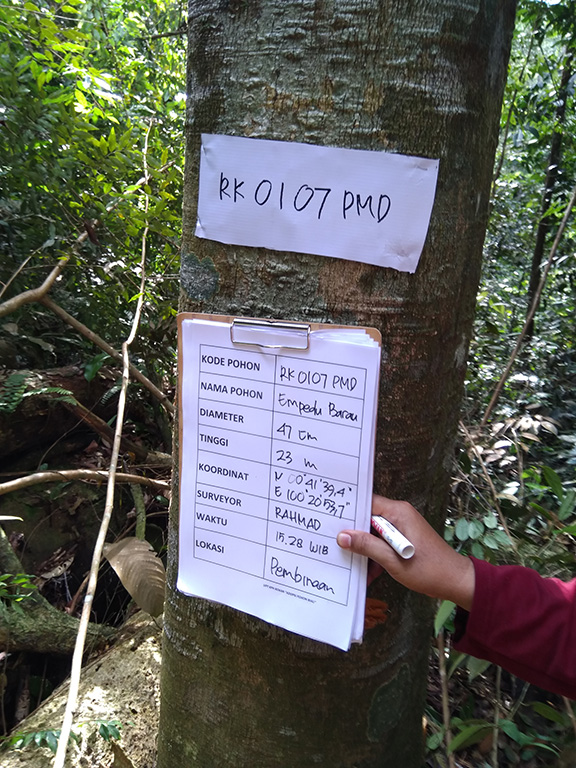 RK 0107 PMD
KODE POHON RK 0107 PMD
NAMA POHON Empedu Barau
DIAMETER 47 cm
TINGGI 23 m
KOORDINAT N 00°41'39,4"
E 100°20'53,7"
SURVEYOR RAHMAD
WAKTU 15.28 WIB
LOKASI Pembinaan